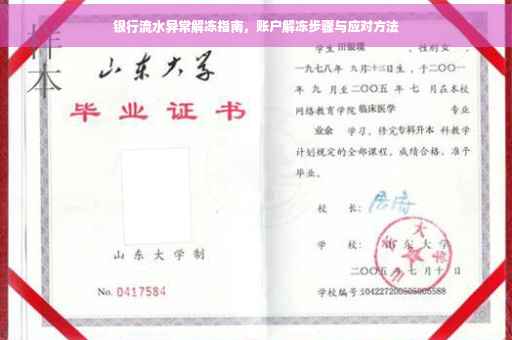 银行流水异常解冻指南，账户解冻步骤与应对方法
样本
山东大学
毕业证书
山东大学制
No. 0417584
学生 田银環 ，性别女 ，
一九七八年 九月十三日生，于二〇〇一
年 九 月至二〇〇五 年 七 月在本校
网络教育学院 临床医学 专业
业余 学习，修完专科升本 科教学
计划规定的全部课程，成绩合格，准予
毕业。
校 长：
学 校： 山 东 大 学
二〇〇五 年 七 月 十 日
学校编号:104227200505005588